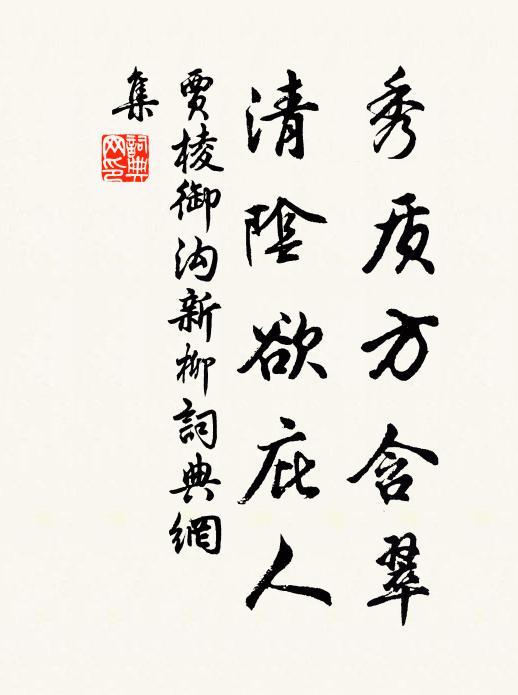 秀质方含翠
清陰欲庇人
賈棱御沟新柳詞典網
集
詞典網印